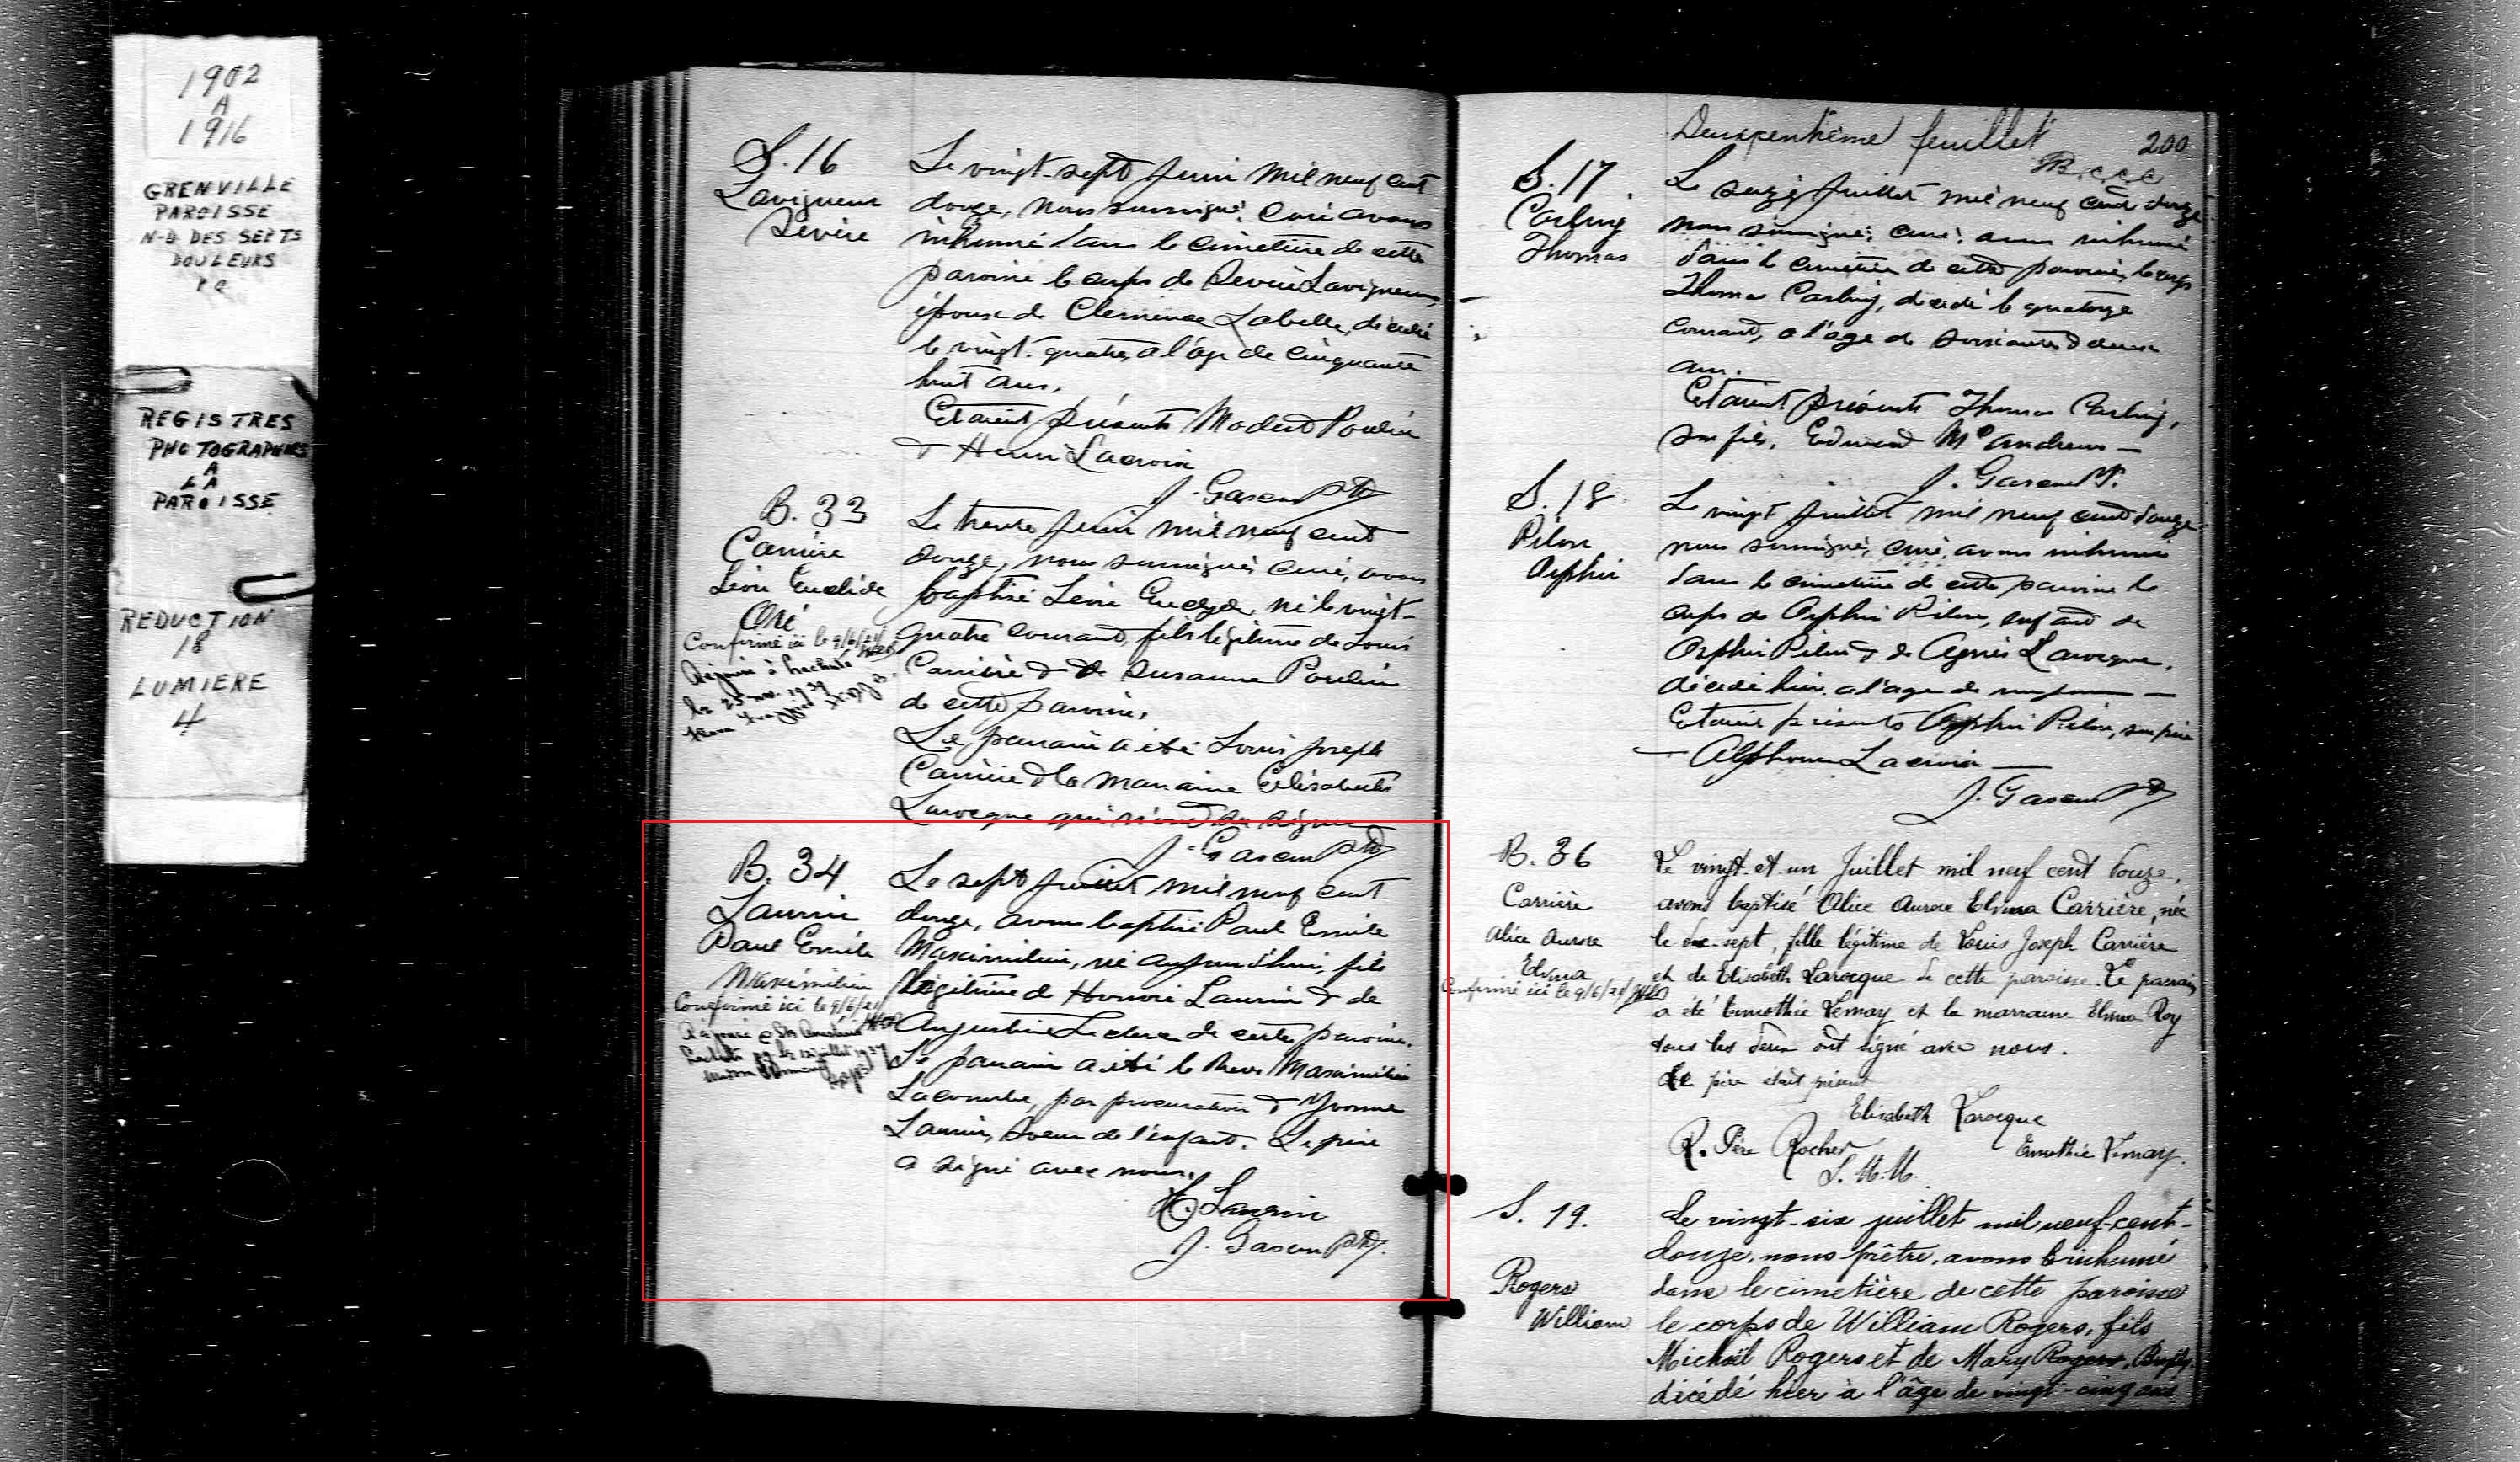 1902
A
1916
GRENVILLE
PAROISSE
N-D DES SEPTS
DOULEURS
P Q
REGISTRES
PHOTOGRAPHIES
A
LA
PAROISSE
REDUCTION
18
LUMIERE
4
S. 16
Lavigueur
Sévère
Le vingt-sept Juin mil neuf cent
douze, nous soussigné, curé avons
inhumé dans le cimetière de cette
paroisse le corps de Sévère Lavigueur,
époux de Clémence Labelle, décédé
le vingt-quatre, à l'âge de cinquante
huit ans.
Etaient présents Modest Poulin
& Henri Lacroix
J. Gascon ptr
B. 33
Carrière
Léon Euclide
Oné
Confirmé ici le 9/6/21
à Lachute
le 25 nov. 1939
Le trente Juin mil neuf cent
douze, nous soussigné, curé, avons
baptisé Léon Euclyde, né le vingt-
quatre courant, fils légitime de Louis
Carrière & de Susanne Poulin
de cette paroisse.
Le parrain a été Louis Joseph
Carrière & la marraine Elisabeth
Larocque qui n'ont su signer
J. Gascon ptr
B. 34
Laurin
Paul Emile
Maximilien
Confirmé ici le 9/6/21
le 12 juillet 1937
Le sept Juillet mil neuf cent
douze, avons baptisé Paul Emile
Maximilien, né aujourd'hui, fils
légitime de Honoré Laurin & de
Augustine Leclerc de cette paroisse.
Le parrain a été le Révd Maximilien
Lacombe, par procuration & Yvonne
Laurin, soeur de l'enfant. Le père
a signé avec nous.
H. Laurin
J. Gascon ptr.
Deuxcentième feuillet 200
B. c.c.c
S. 17
Carling
Thomas
Le seize Juillet mil neuf cent douze
nous soussigné, curé, avons inhumé
dans le cimetière de cette paroisse, le corps
Thomas Carling, décédé le quatorze
courant, à l'âge de soixante & deux
ans.
Etaient présents Thomas Carling,
son fils, Edward McAndrews —
J. Gascon Pt.
S. 18
Pilon
Orphir
Le vingt Juillet mil neuf cent douze
nous soussigné, curé, avons inhumé
dans le cimetière de cette paroisse le
corps de Orphir Pilon, enfant de
Orphir Pilon & de Agnès Larocque,
décédé hier, à l'âge de —
Etaient présents Orphir Pilon, son père
— Alphonse Lacroix —
J. Gascon ptr
B. 36
Carrière
Alice Aurore
Elmna
Confirmé ici le 9/6/21
Le vingt-et-un Juillet mil neuf cent douze,
avons baptisé Alice Aurore Elmna Carrière, née
le dix-sept, fille légitime de Louis Joseph Carrière
et de Elisabeth Larocque de cette paroisse. Le parrain
a été Timothée Lemay et la marraine Elmna Roy
tous les deux ont signé avec nous.
Le père était présent
Elisabeth Larocque
R. Père Rocher Timothée Lemay.
S. M. M.
S. 19.
Rogers
William
Le vingt-six juillet mil neuf-cent-
douze, nous prêtre, avons inhumé
dans le cimetière de cette paroisse
le corps de William Rogers, fils
Michaël Rogers et de Mary Rogers,
décédé hier à l'âge de vingt-cinq ans